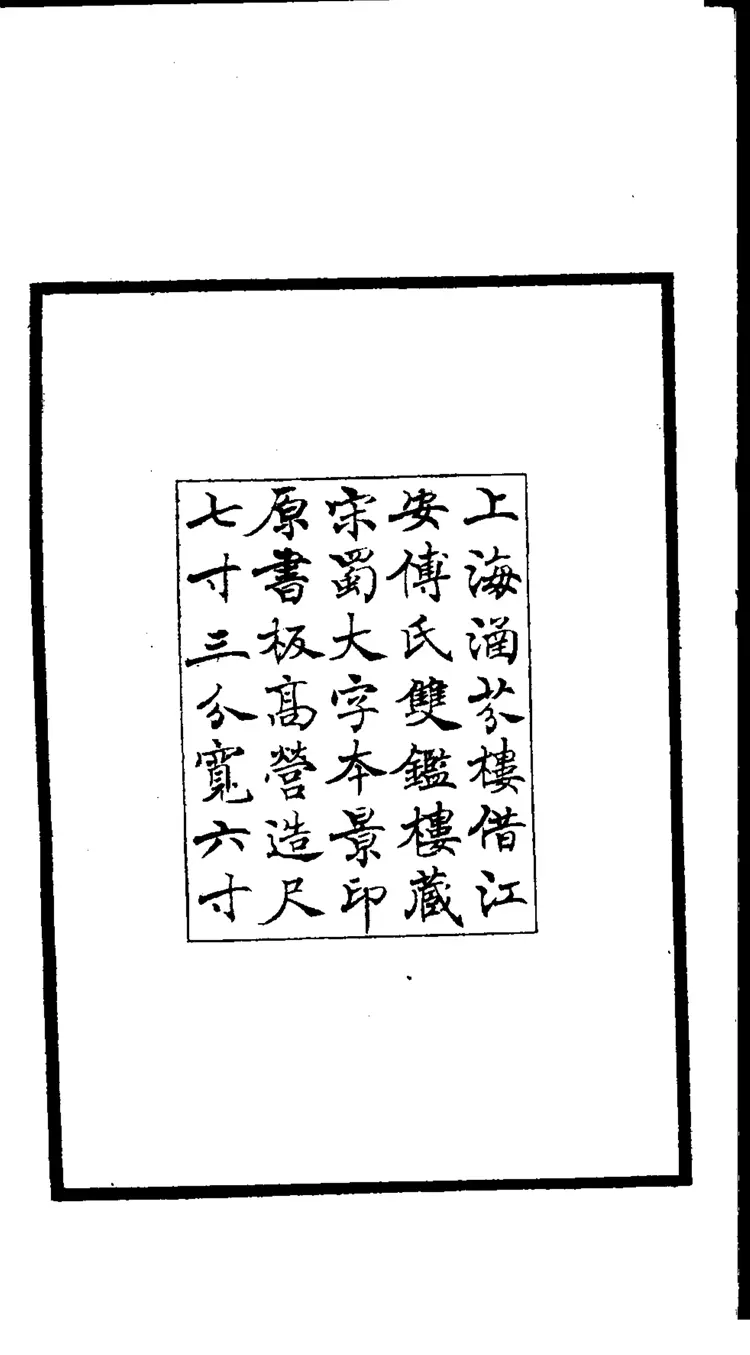 上海涵芬樓借江
安傅氏雙鑑樓藏
宋蜀大字本景印
原書板高營造尺
七寸三分寬六寸